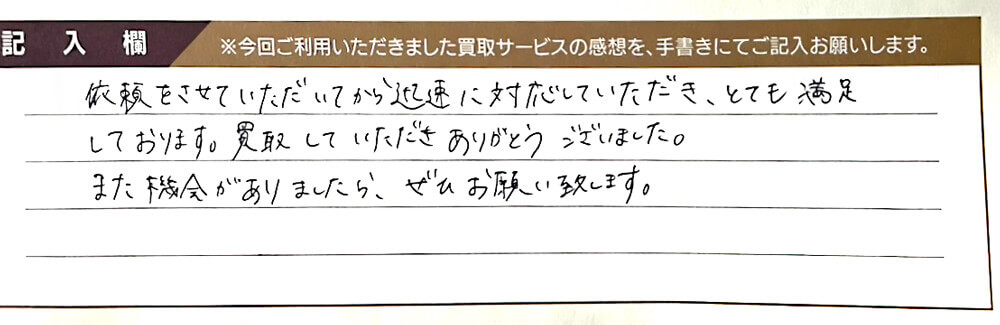 記入欄 ※今回ご利用いただきました買取サービスの感想を、手書きにてご記入お願いします。
依頼をさせていただいてから迅速に対応していただき、とても満足
しております。買取していただきありがとうございました。
また機会がありましたら、ぜひお願い致します。